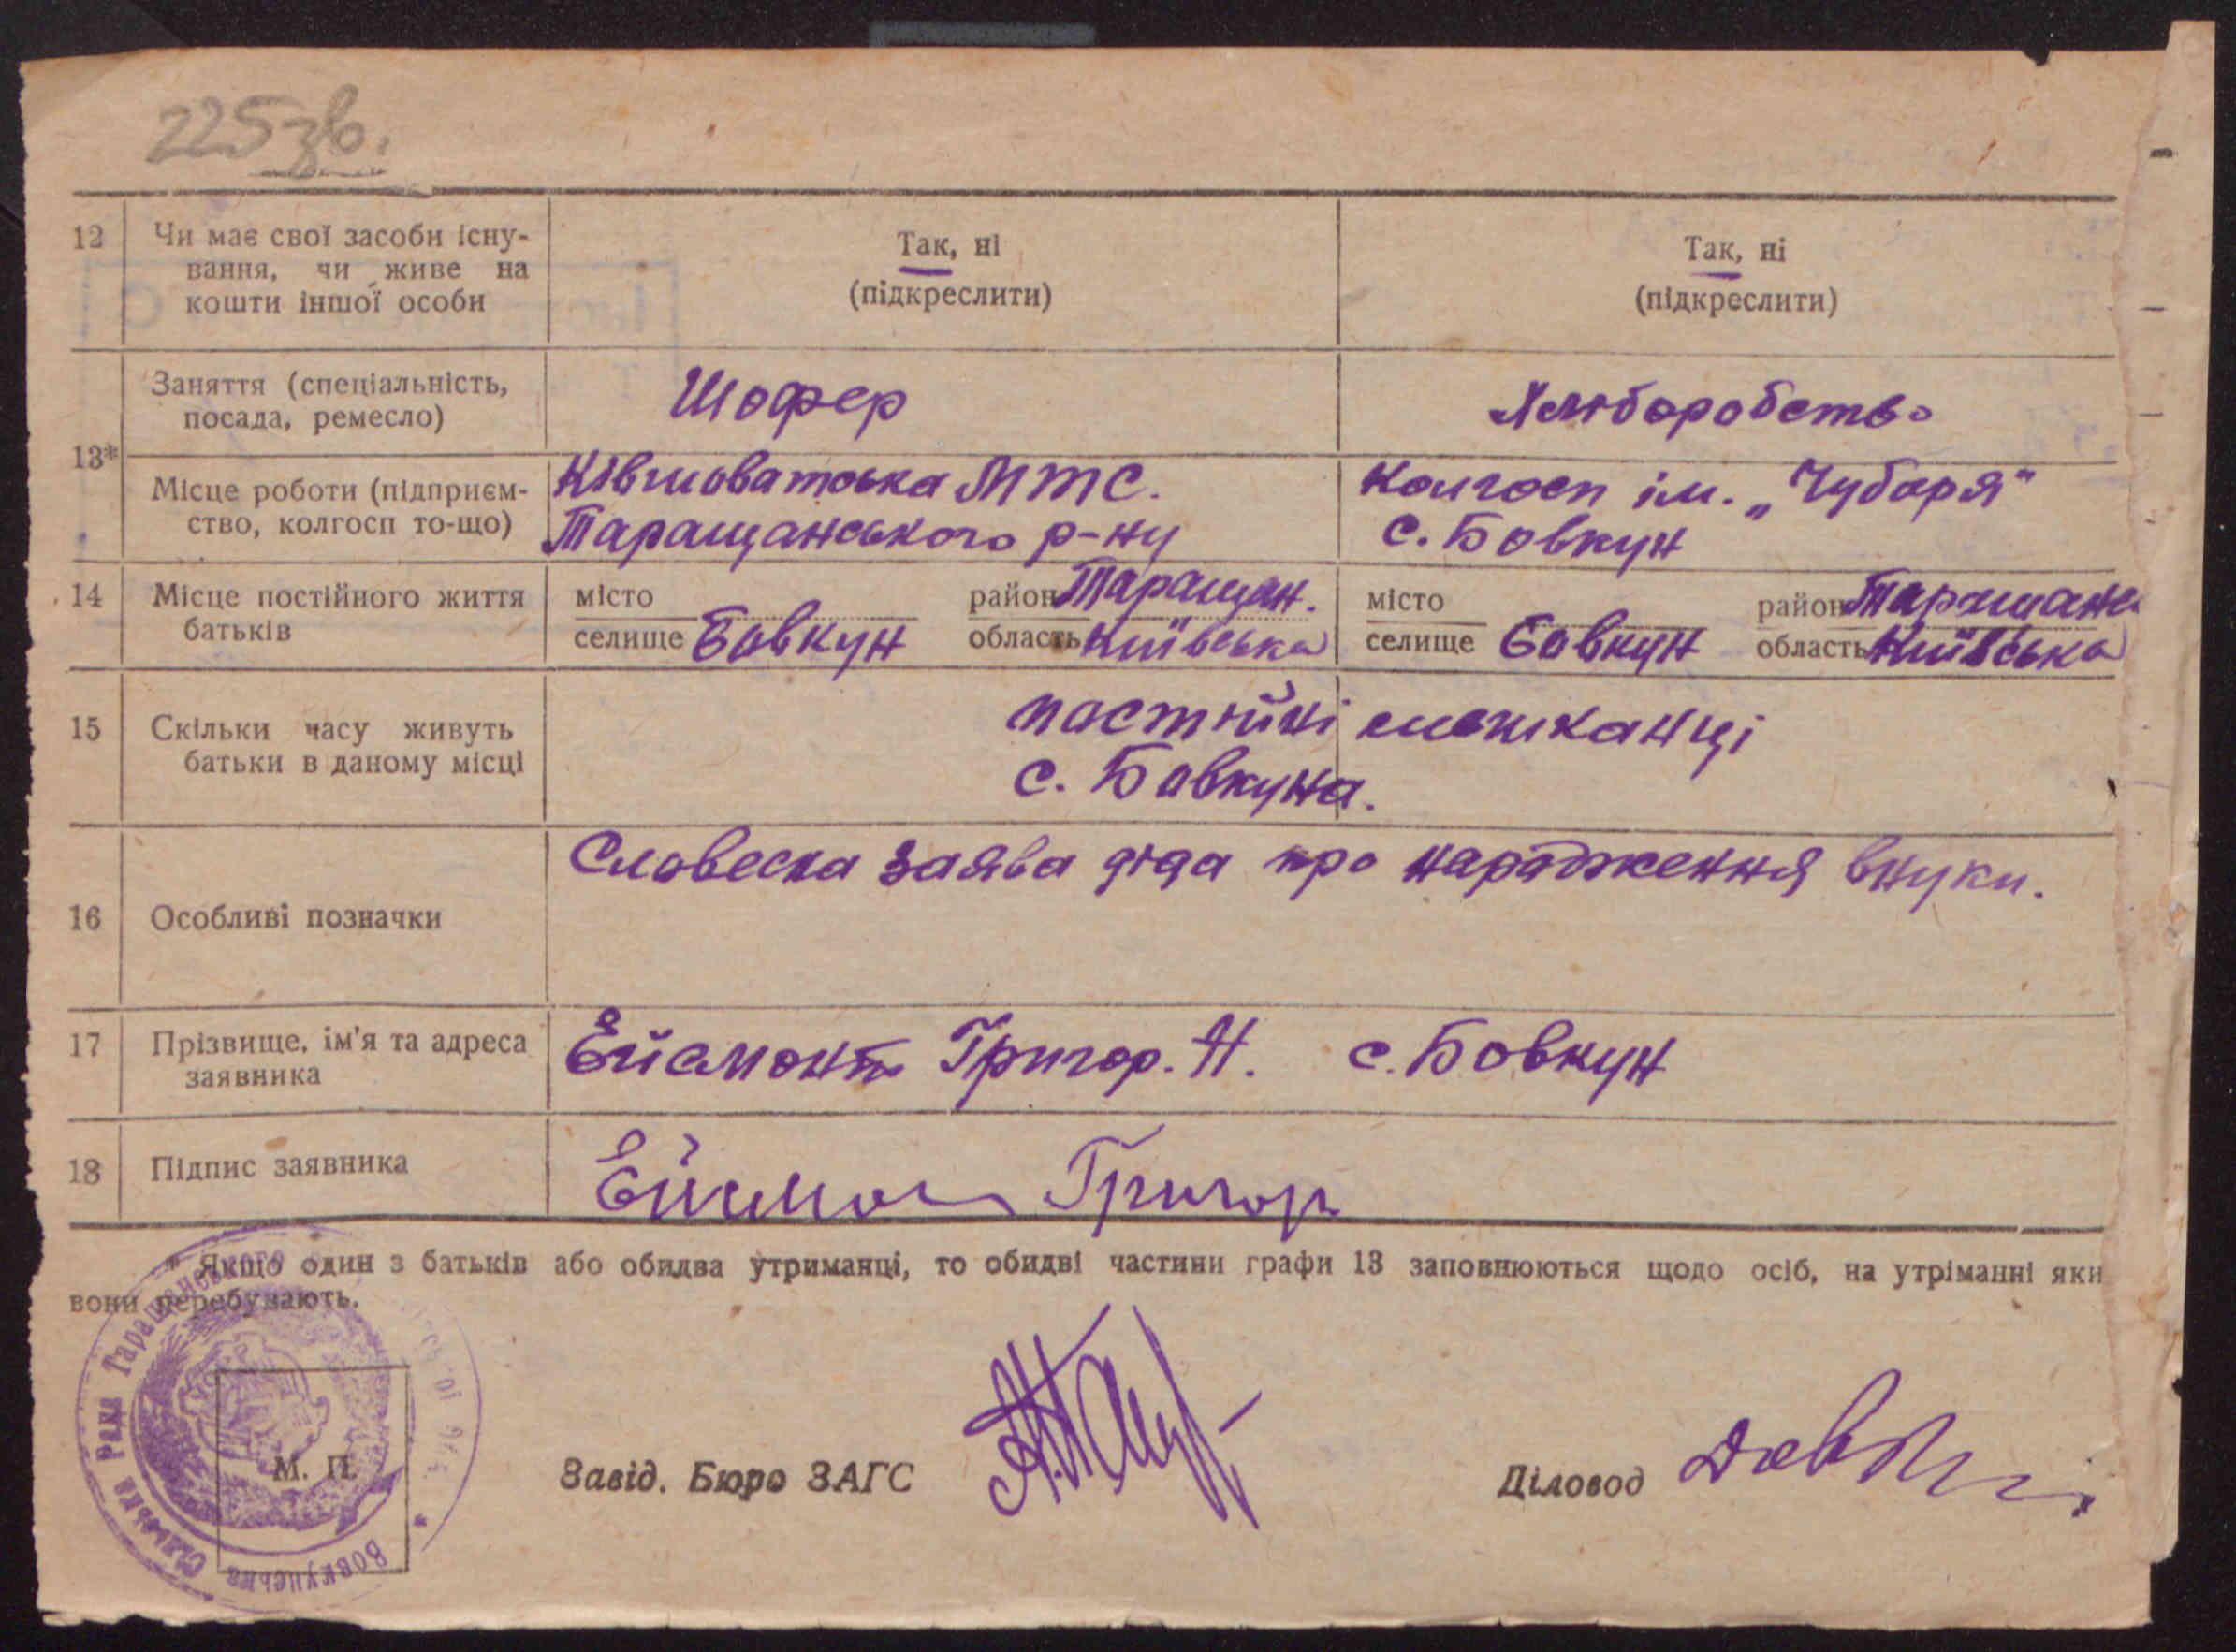 225зв.
12 Чи має свої засоби існу-
вання, чи живе на
кошти іншої особи
Так, ні
(підкреслити)
Так, ні
(підкреслити)
13*
Заняття (спеціальність,
посада, ремесло)
Шофер
Хліборобство
Місце роботи (підприєм-
ство, колгосп то-що)
Ківшоватська МТС.
Таращанського р-ну
Колгосп ім. „Чубаря"
с. Бовкун
14 Місце постійного життя
батьків
місто район Таращан.
селище Бовкун область Київська
місто район Таращанс
селище Бовкун область Київська
15 Скільки часу живуть
батьки в даному місці
постійні мешканці
с. Бовкуна.
16 Особливі позначки
Словесна заява діда про народження внуки.
17 Прізвище, ім'я та адреса
заявника
Ейсмонт Григор. Н. с. Бовкун
18 Підпис заявника
Ейсмон Григор
* Якщо один з батьків або обидва утриманці, то обидві частини графи 13 заповнюються щодо осіб, на утріманні яки
вони перебувають.
Бовкунська Сільська Рада Таращанського
М. П.
Завід. Бюро ЗАГС
Діловод